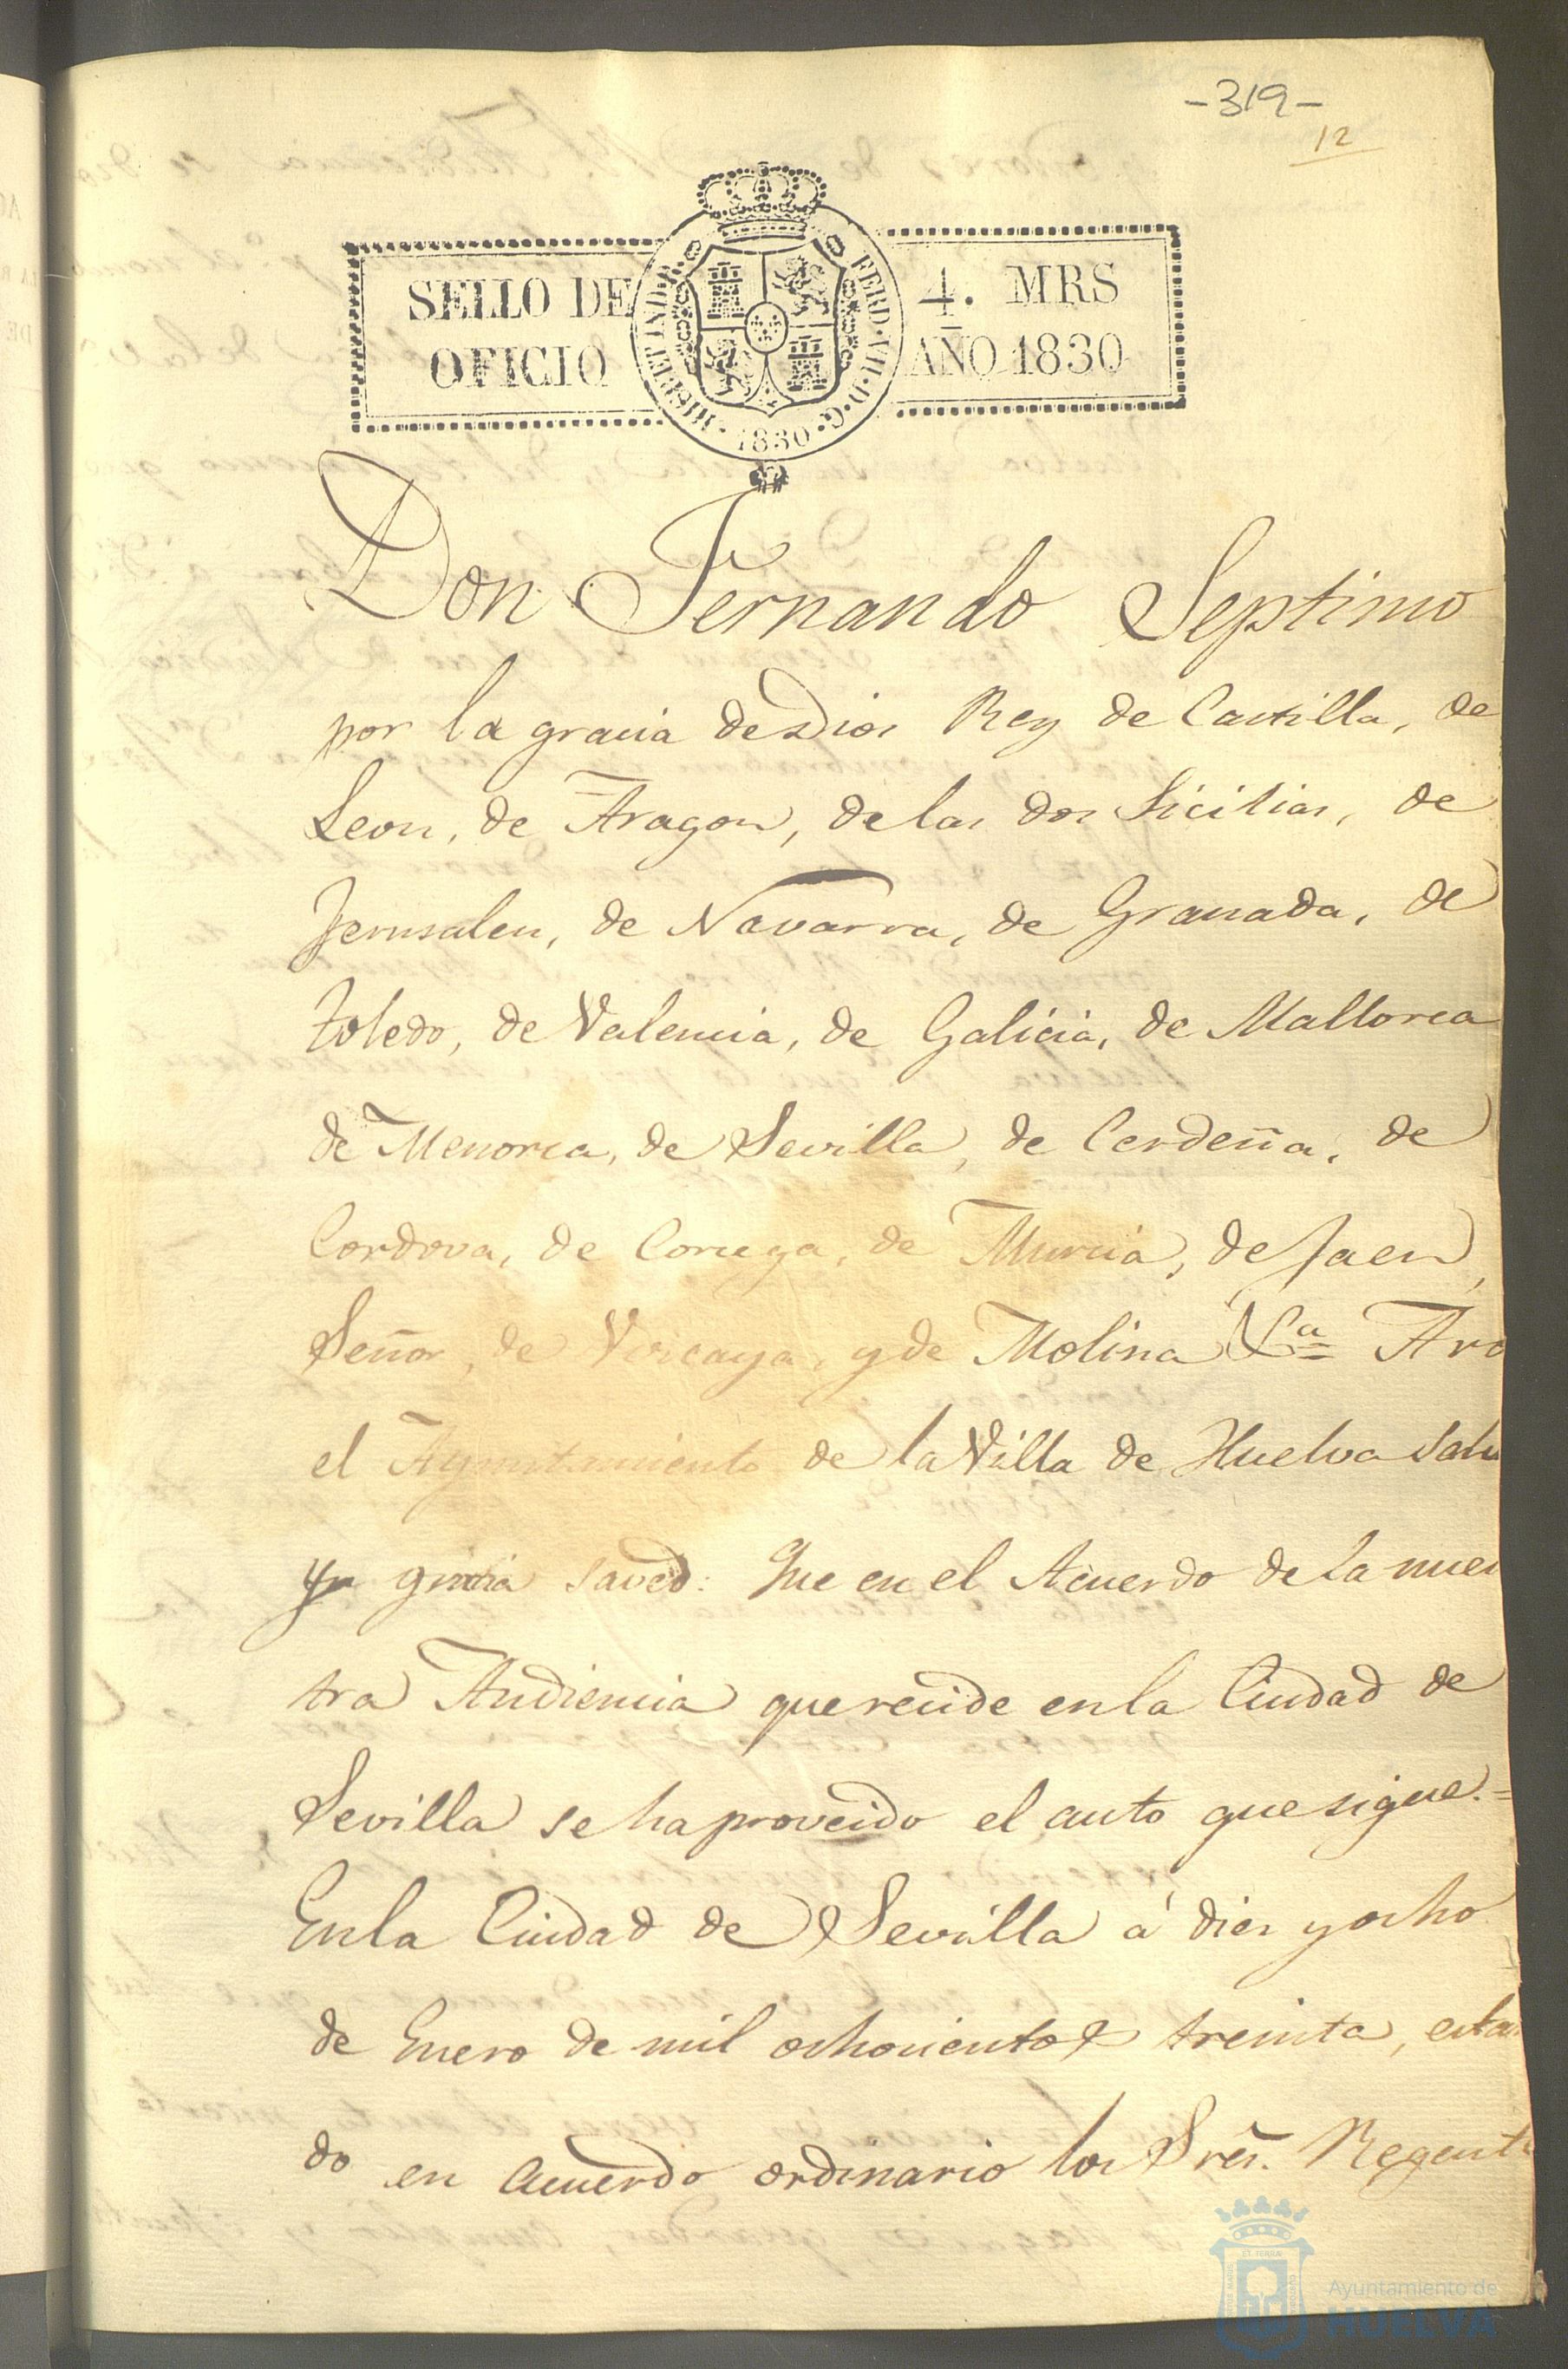 -319-
12
SELLO DE 4. MRS
OFICIO AÑO 1830
HISP. ET IND. R. FERD. VII. D. G. 1830
Don Fernando Septimo
por la gracia de Dios Rey de Castilla, de
Leon, de Aragon, de las dos Sicilias, de
Jerusalen, de Navarra, de Granada, de
Toledo, de Valencia, de Galicia, de Mallorca
de Menorca, de Sevilla, de Cerdeña, de
Cordova, de Corcega, de Murcia, de Jaen,
Señor, de Vizcaya, y de Molina &a = A vo
el Ayuntamiento de la Villa de Huelva salu
y gracia saved: Que en el Acuerdo de la nues
tra Audiencia que reside en la Ciudad de
Sevilla se ha proveido el auto que sigue. =
En la Ciudad de Sevilla á dies y ocho
de Enero de mil ochocientos treinta, estan
do en acuerdo ordinario los Sres. Regente
Ayuntamiento de
HUELVA